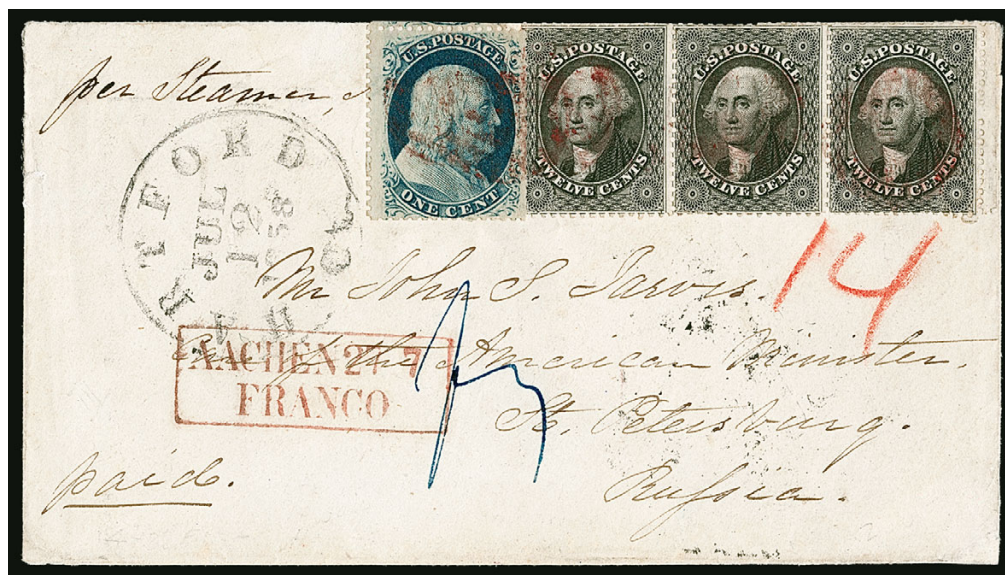 per Steamer,
U.S. POSTAGE
ONE CENT
U.S. POSTAGE
TWELVE CENTS
U.S. POSTAGE
TWELVE CENTS
U.S. POSTAGE
TWELVE CENTS
HARTFORD
JUL
12
1858
14
Mr John S. Jarvis.
Care of the American Minister.
St. Petersburg.
Russia.
AACHEN 27 7
FRANCO
paid.